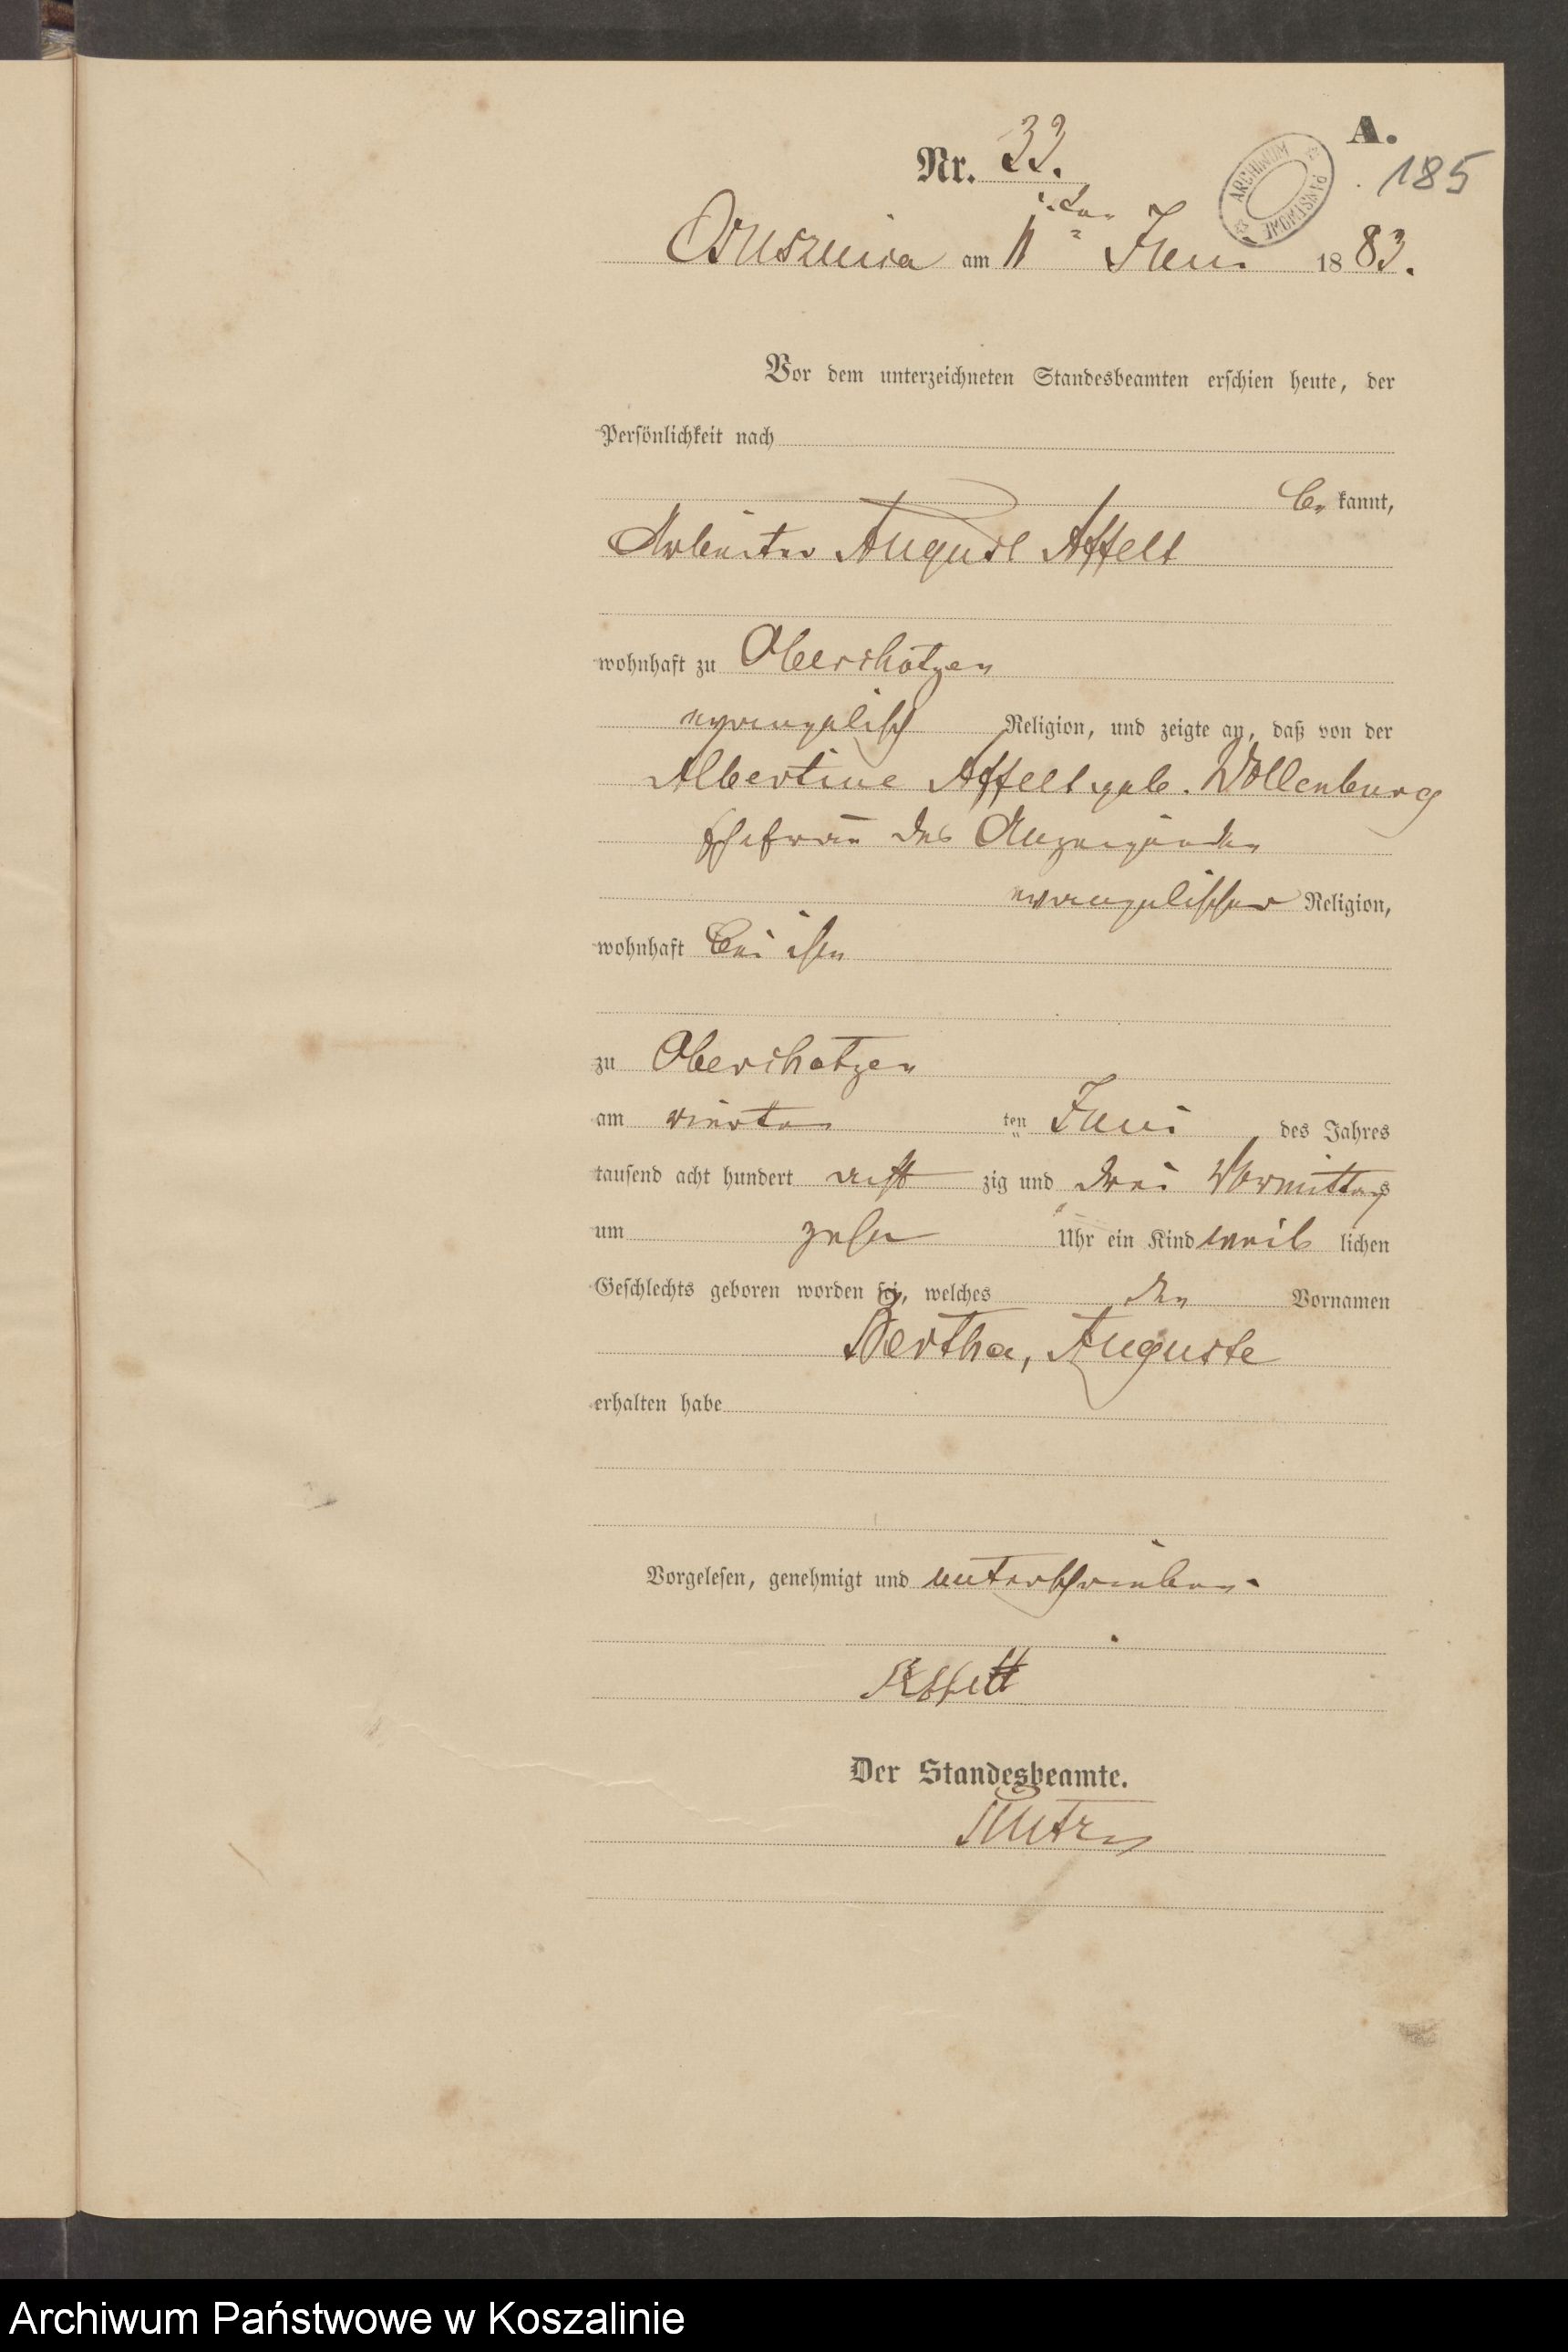 A.
Nr. 33.
185
ARCHIWUM PAŃSTWOWE
am 11ten Juni 1883.
Vor dem unterzeichneten Standesbeamten erschien heute, der
Persönlichkeit nach
be kannt,
Arbeiter August Affelt
wohnhaft zu Oberschotzen
evangelisch Religion, und zeigte an, daß von der
Albertine Affelt geb. Wollenburg
Ehefrau des Anzeigenden
evangelischer Religion,
wohnhaft bei ihm
zu Oberschotzen
am vierten ten Juni des Jahres
tausend acht hundert acht zig und drei Vormittags
um zehn Uhr ein Kind weib lichen
Geschlechts geboren worden sei, welches den Vornamen
Bertha, Auguste
erhalten habe
Vorgelesen, genehmigt und unterschrieben.
Affelt
Der Standesbeamte.
Archiwum Państwowe w Koszalinie